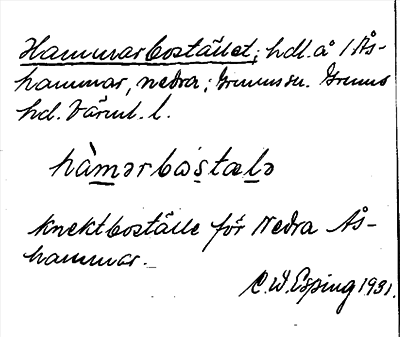 Hammarbostället; hdl. å 1 Ås-
hammar, nedra; Grums sn. Grums
hd. Värml. l.
hàmərbostælə
Knektboställe för Nedra Ås-
hammar.
C. W. Esping 1931.